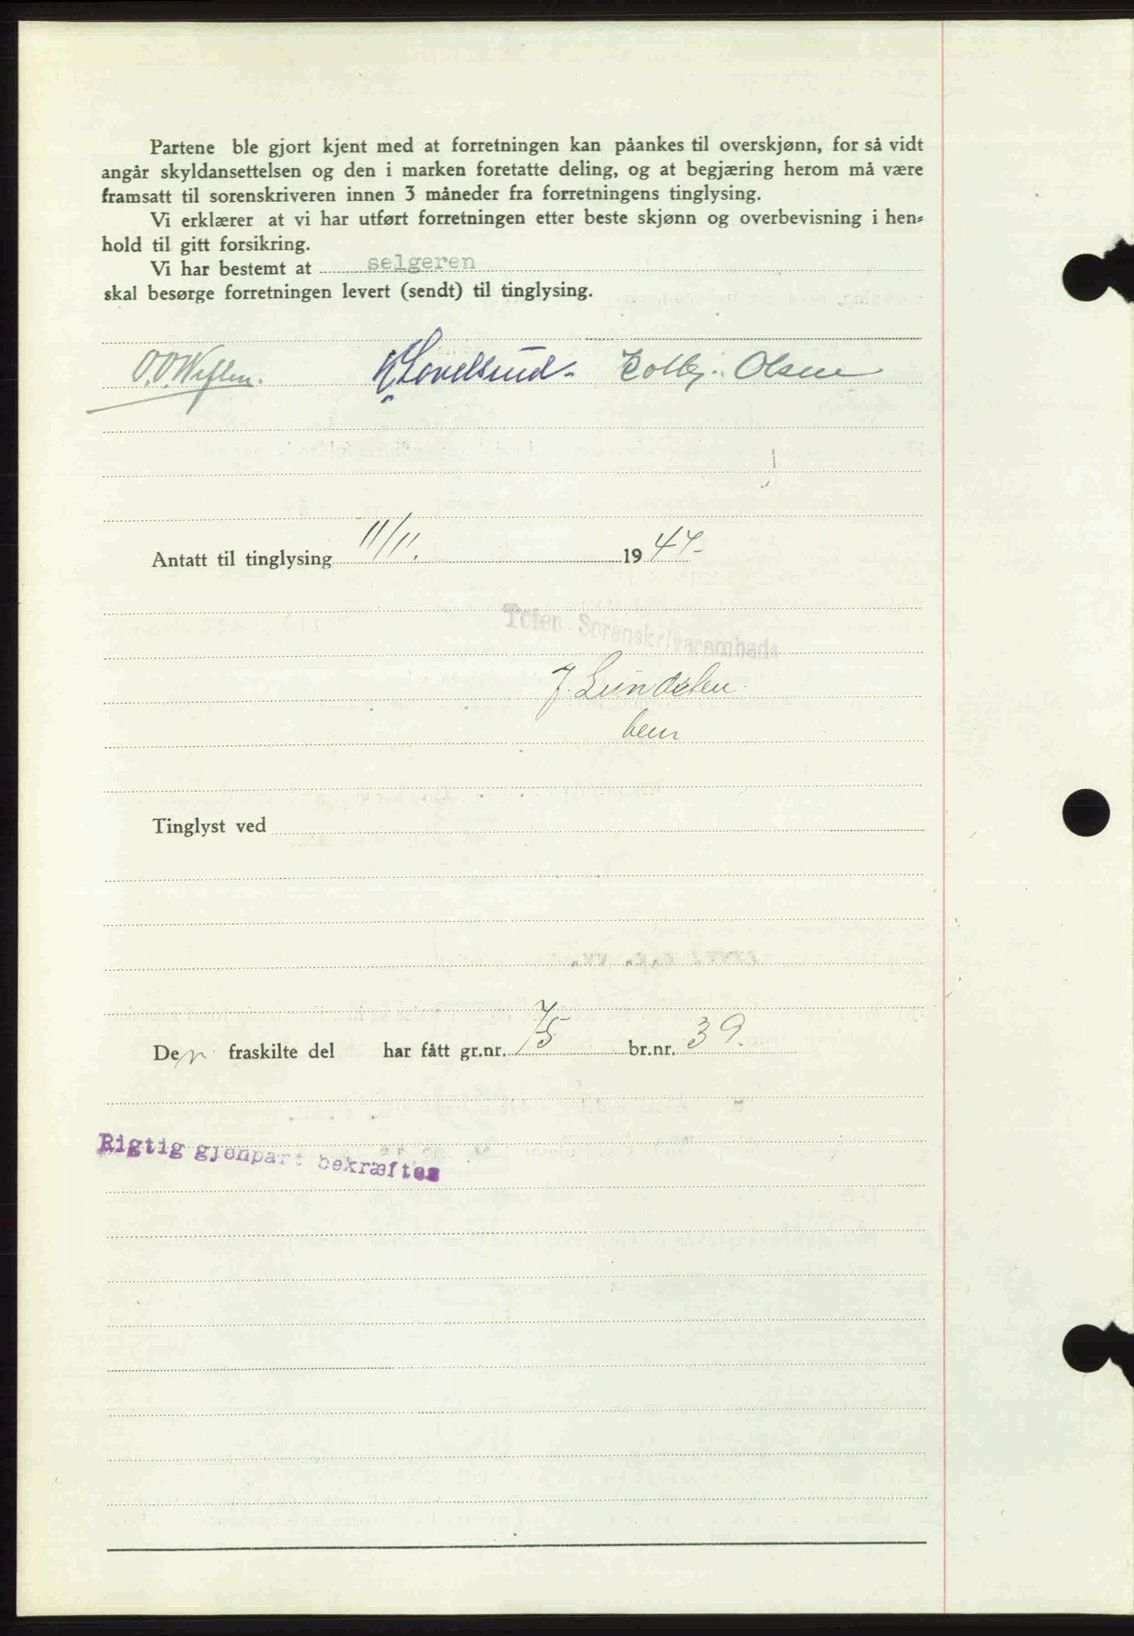 Partene ble gjort kjent med at forretningen kan påankes til overskjønn, for så vidt
angår skyldansettelsen og den i marken foretatte deling, og at begjæring herom må være
framsatt til sorenskriveren innen 3 måneder fra forretningens tinglysing.
Vi erklærer at vi har utført forretningen etter beste skjønn og overbevisning i hen-
hold til gitt forsikring.
Vi har bestemt at selgeren
skal besørge forretningen levert (sendt) til tinglysing.
Kolbj. Olsen
Antatt til tinglysing 11/11. 1947-
Toten Sorenskriverembede
J. Lundsten
Tinglyst ved
Den fraskilte del har fått gr.nr. 75 br.nr. 39.
Rigtig gjenpart bekræftes